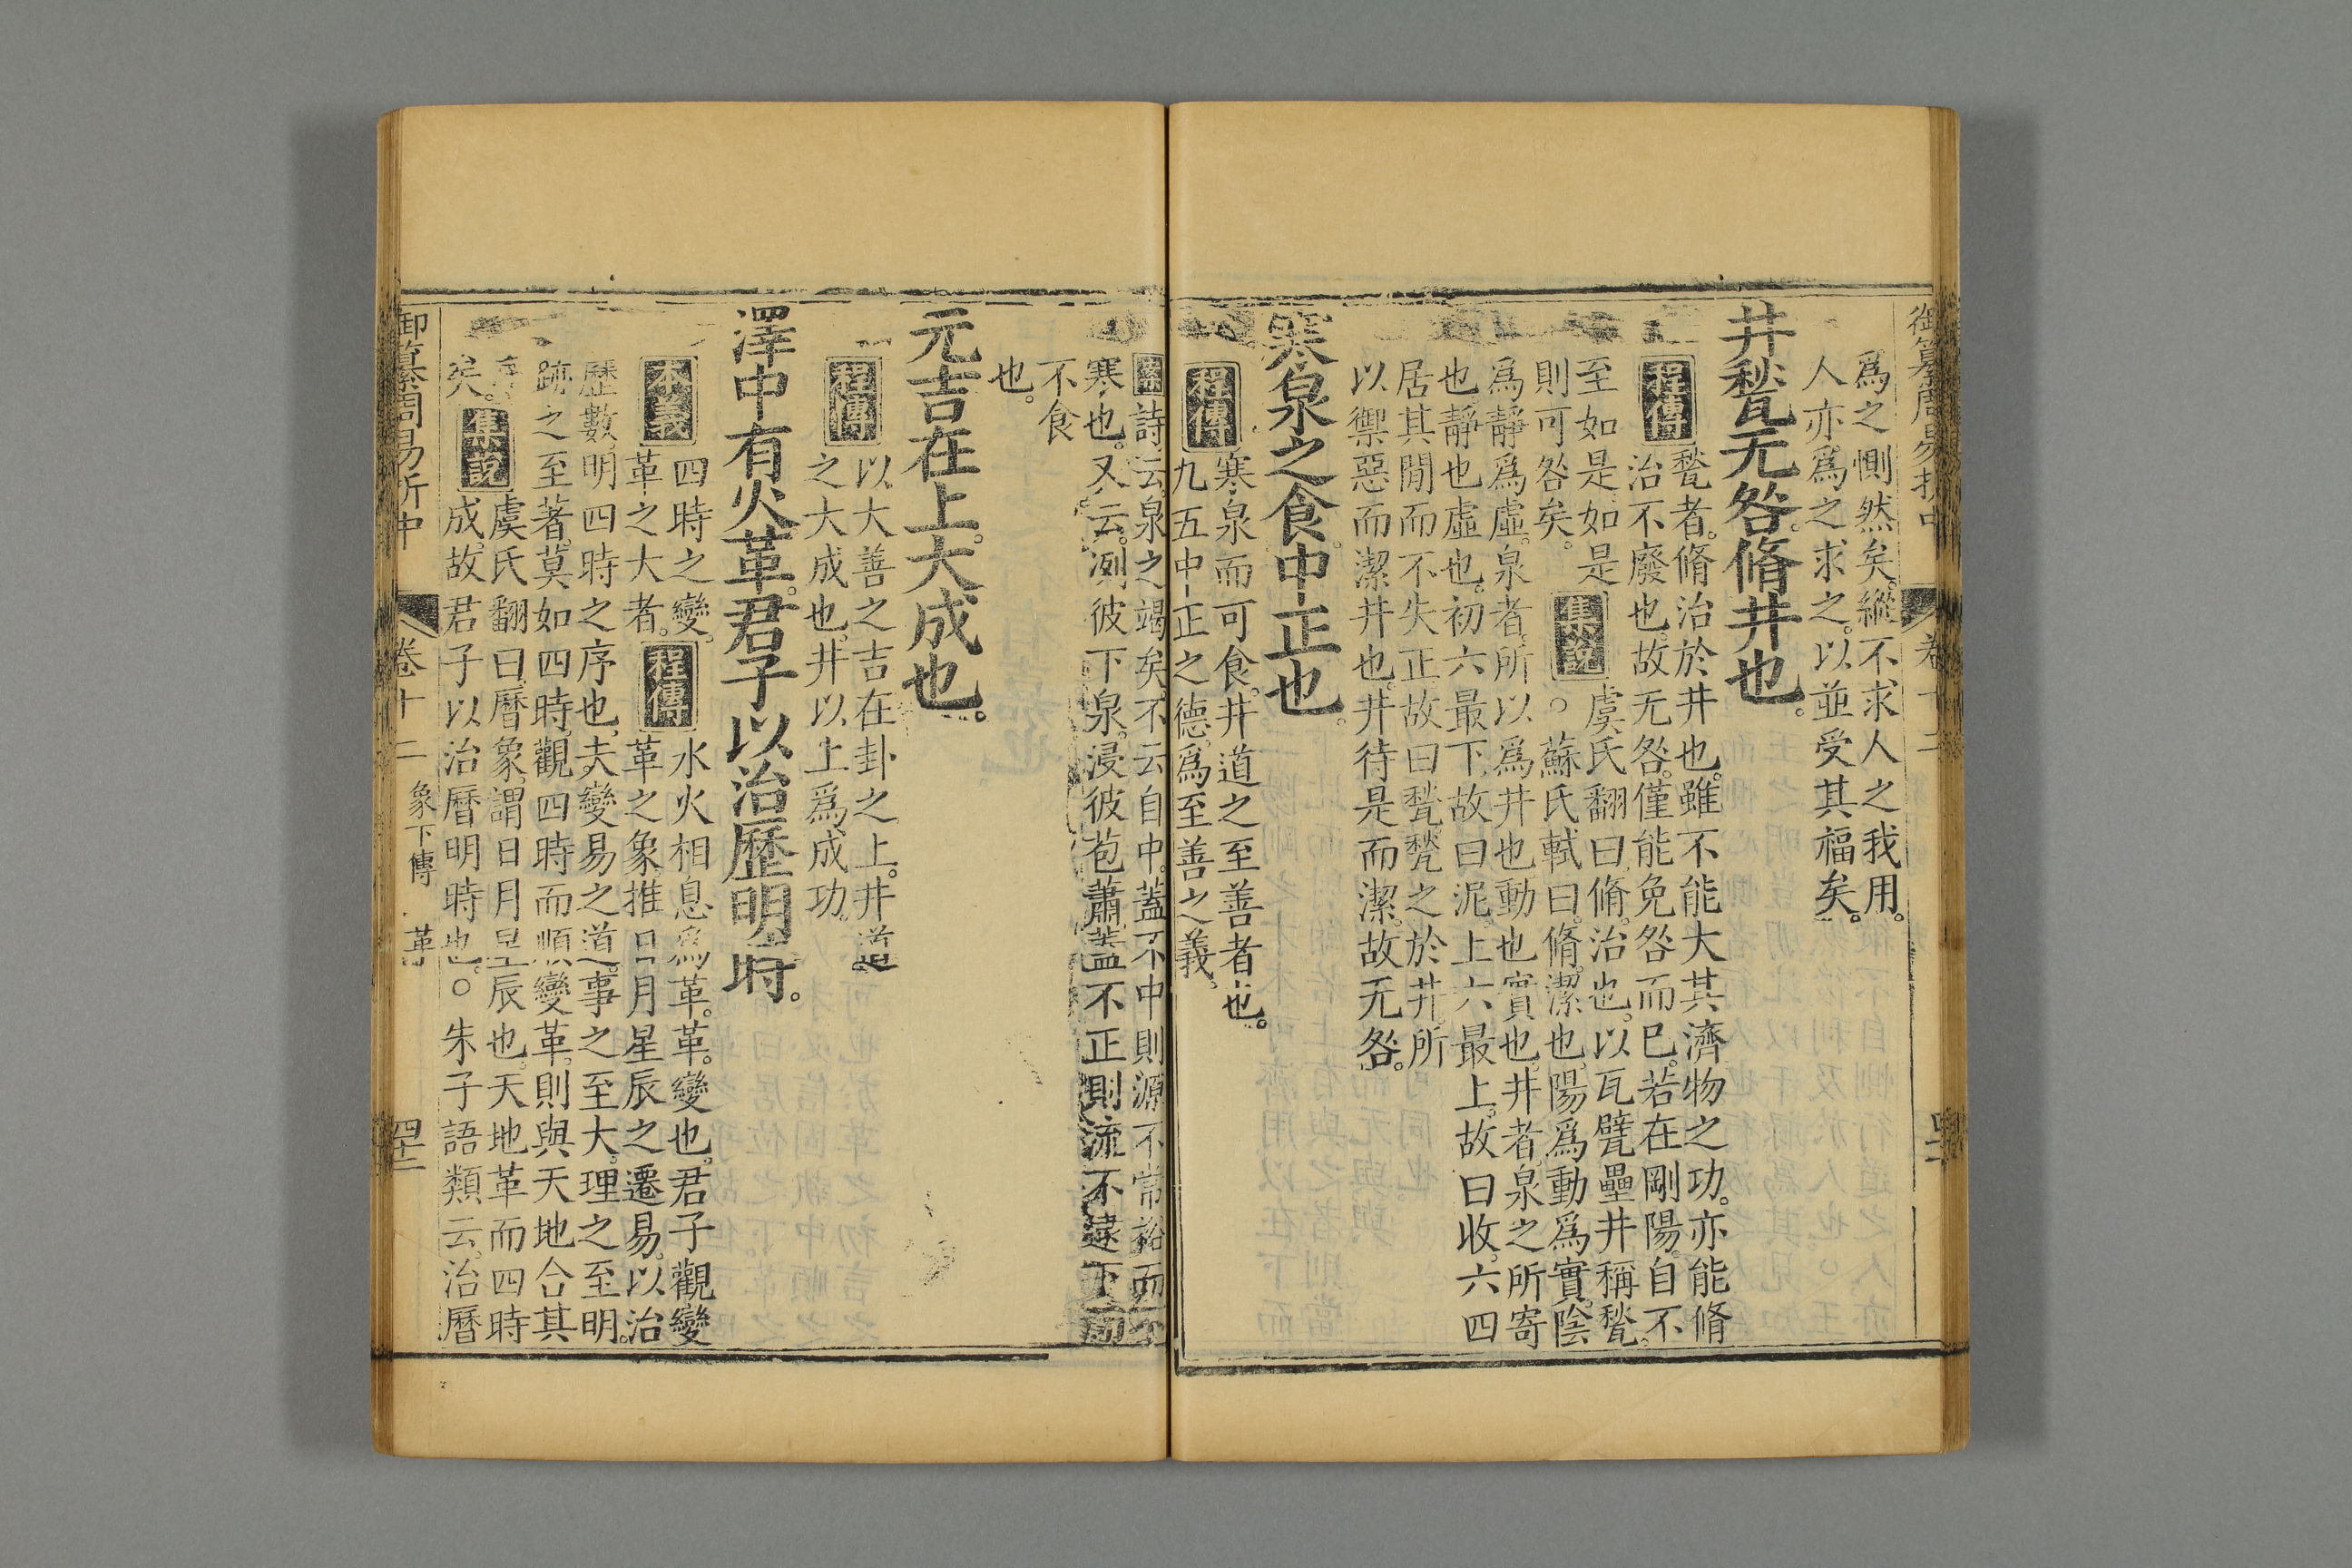 御纂周易折中
卷十二
爲之惻然矣。縱不求人之我用。
人亦爲之求之。以並受其福矣。
井甃无咎。脩井也。
程傳
甃者。脩治於井也。雖不能大其濟物之功。亦能脩
治不廢也。故无咎。僅能免咎而已。若在剛陽。自不
至如是。如是
則可咎矣。
集說
虞氏翻曰。脩。治也。以瓦甓壘井稱甃。
○蘇氏軾曰。脩。潔也。陽爲動爲實。陰
爲靜爲虛。泉者。所以爲井也。動也。實也。井者。泉之所寄
也。靜也。虛也。初六最下。故曰泥。上六最上。故曰收。六四
居其閒而不失正。故曰甃。甃之於井。所
以禦惡而潔井也。井待是而潔。故无咎。
寒泉之食。中正也。
程傳
寒泉而可食。井道之至善者也。
九五中正之德。爲至善之義。
案
詩云。泉之竭矣。不云自中。蓋不中則源不常裕而不
寒也。又云。冽彼下泉。浸彼苞蕭。蓋不正則流不逮下而
不食
也。
元吉在上。大成也。
程傳
以大善之吉在卦之上。井道
之大成也。井以上爲成功。
澤中有火。革。君子以治歷明時。
本義
四時之變。
革之大者。
程傳
水火相息爲革。革。變也。君子觀變
革之象。推日月星辰之遷易。以治
歷數。明四時之序也。夫變易之道。事之至大。理之至明。
跡之至著。莫如四時。觀四時而順變革。則與天地合其
序
矣。
集說
虞氏翻曰。曆象。謂日月星辰也。天地革而四時
成。故君子以治曆明時也。○朱子語類云。治曆
御纂周易折中
卷十二
象下傳
革
四十二